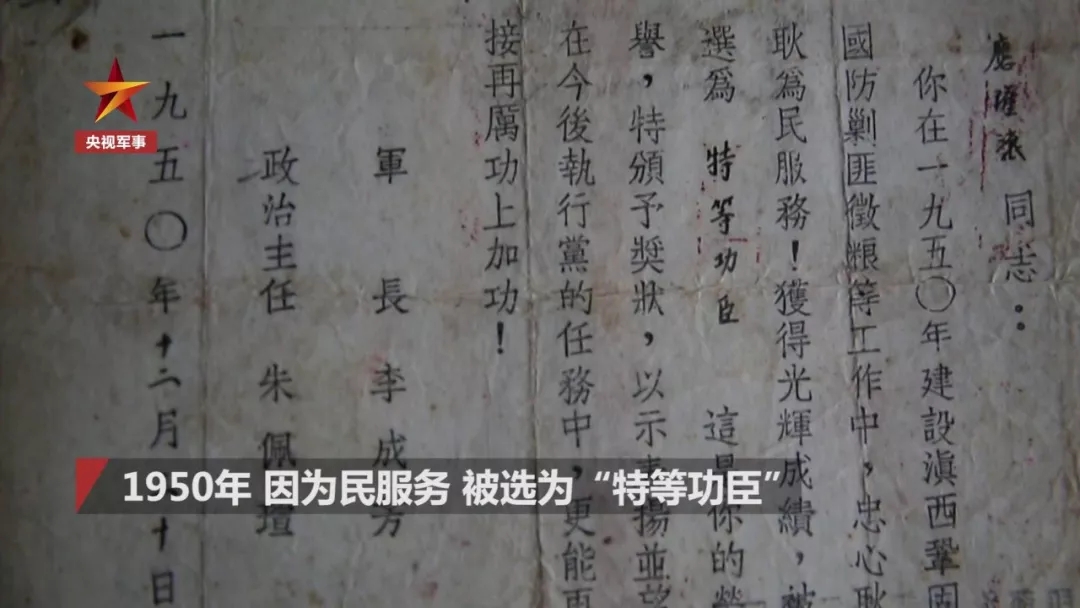 同志：
你在一九五〇年建設滇西鞏固
國防剿匪徵粮等工作中，忠心耿
耿爲民服務！獲得光輝成績，被
選爲 特等功臣 這是你的榮
譽，特頒予獎狀，以示表揚並望
在今後執行黨的任務中，更能再
接再厲功上加功！
軍 長 李成芳
政治主任 朱佩瑄
一九五〇年十二月 十日
央视军事
1950年 因为民服务 被选为“特等功臣”